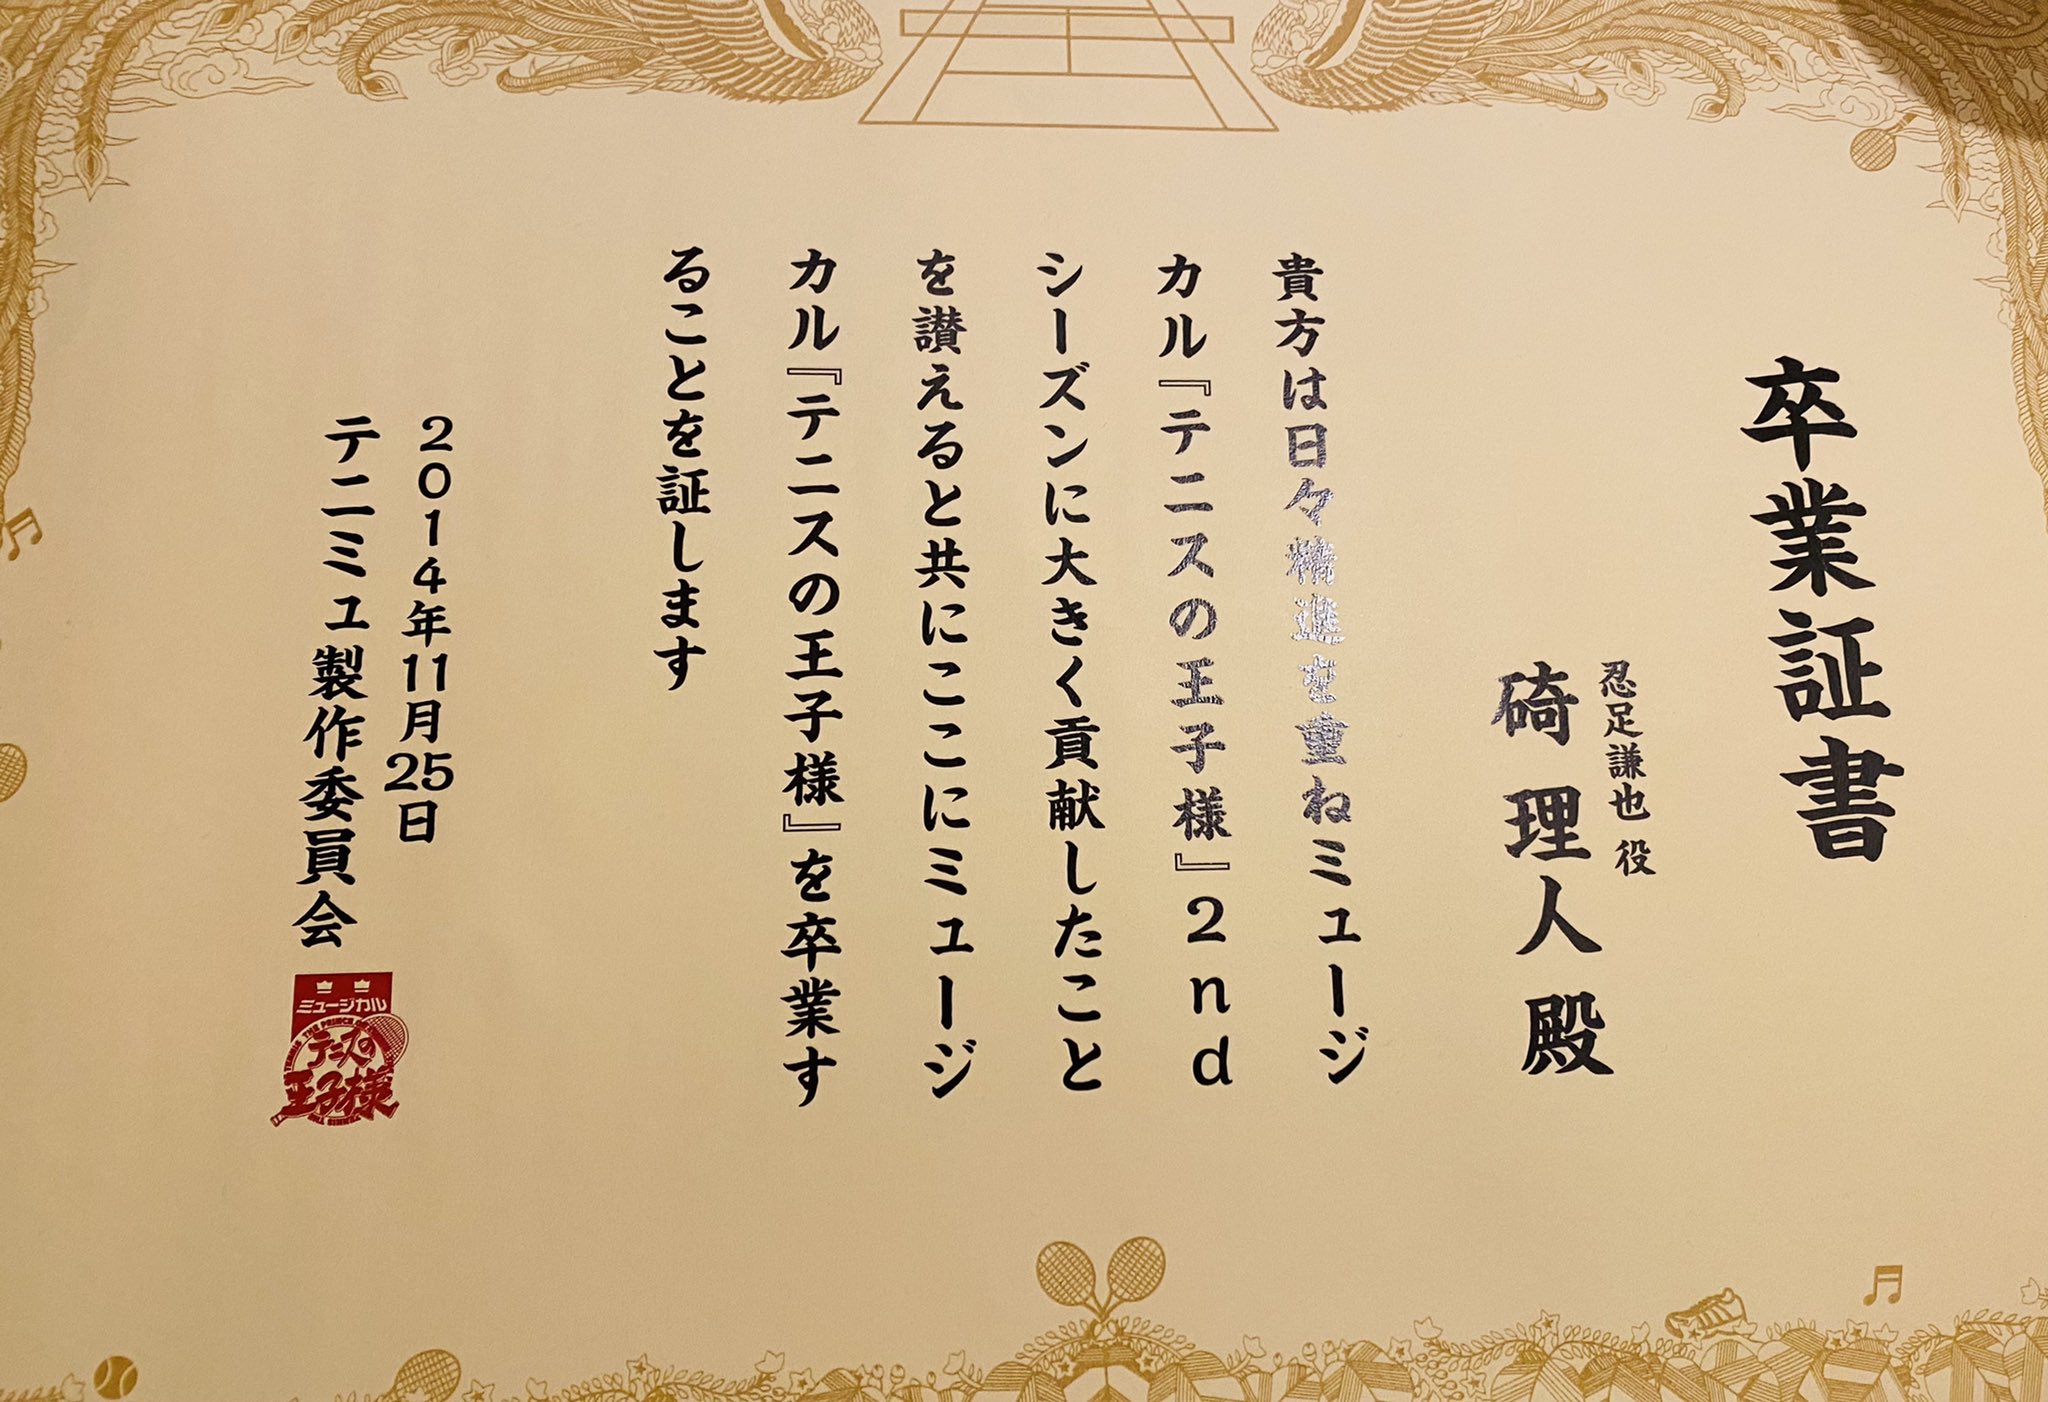 卒業証書
忍足謙也 役
碕 理人 殿
貴方は日々精進を重ねミュージ
カル『テニスの王子様』2nd
シーズンに大きく貢献したこと
を讃えると共にここにミュージ
カル『テニスの王子様』を卒業す
ることを証します
2014年11月25日
テニミュ製作委員会
ミュージカル
テニスの
王子様